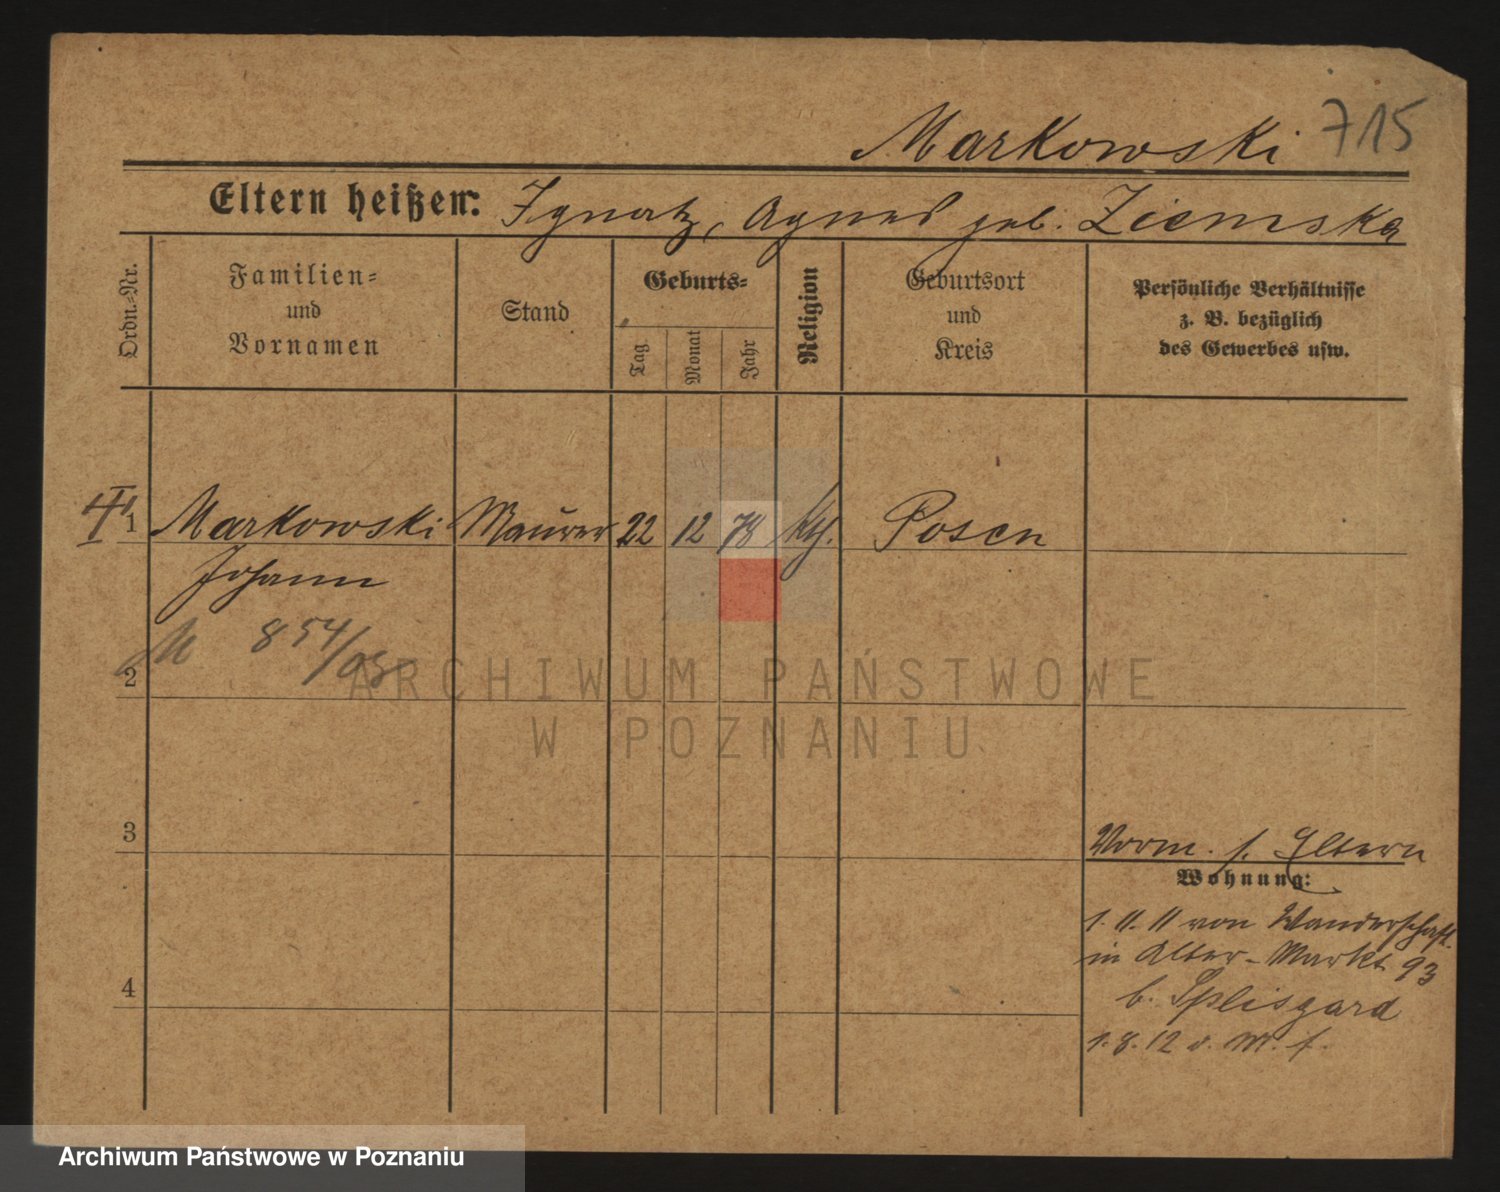 Markowski 715
Eltern heißen: Ignatz, Agnes geb. Ziemska
Ordn.=Nr.
Familien=
und
Vornamen
Stand
Geburts=
Tag
Monat
Jahr
Religion
Geburtsort
und
Kreis
Persönliche Verhältnisse
z. B. bezüglich
des Gewerbes usw.
1 Markowski Maurer 22 12 78 kth. Posen
Johann
854/03
2
3
4
Vorm. s. Eltern
Wohnung:
1. 11. 11 von Wanderschaft
in Alter-Markt 93
b. Splisgard
1. 8. 12 v. M. f.
ARCHIWUM PAŃSTWOWE
W POZNANIU
Archiwum Państwowe w Poznaniu